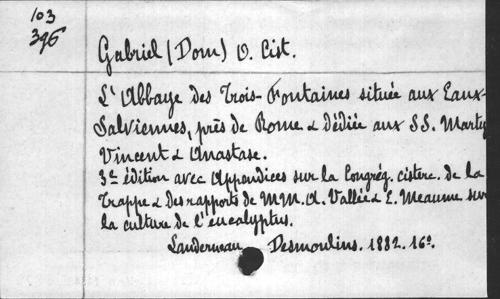 103
396
Gabriel (Dom) O. Cist.
L'Abbaye des Trois-Fontaines située aux Eaux-
Salviennes, près de Rome & dédiée aux SS. Marty
Vincent & Anastase.
3e édition avec Appendices sur la Congrég. cisterc. de la
Trappe & des rapports de MM. A. Vallée & E. Meaume sur
la culture de l'eucalyptus.
Landerneau Desmoulins. 1882. 16º.